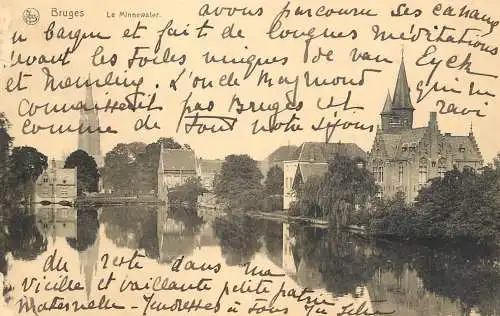 Bruges Le Minnewater.
avons parcouru ses canaux
en barque et fait de longues méditations
devant les toiles uniques de van Eyck
et Memling. L'oncle Raymond
connaissait pas Bruges et
qui en
ravi
comme de tout notre séjour
du reste dans ma
vieille et vaillante petite patrie
maternelle. Tendresses à tous du